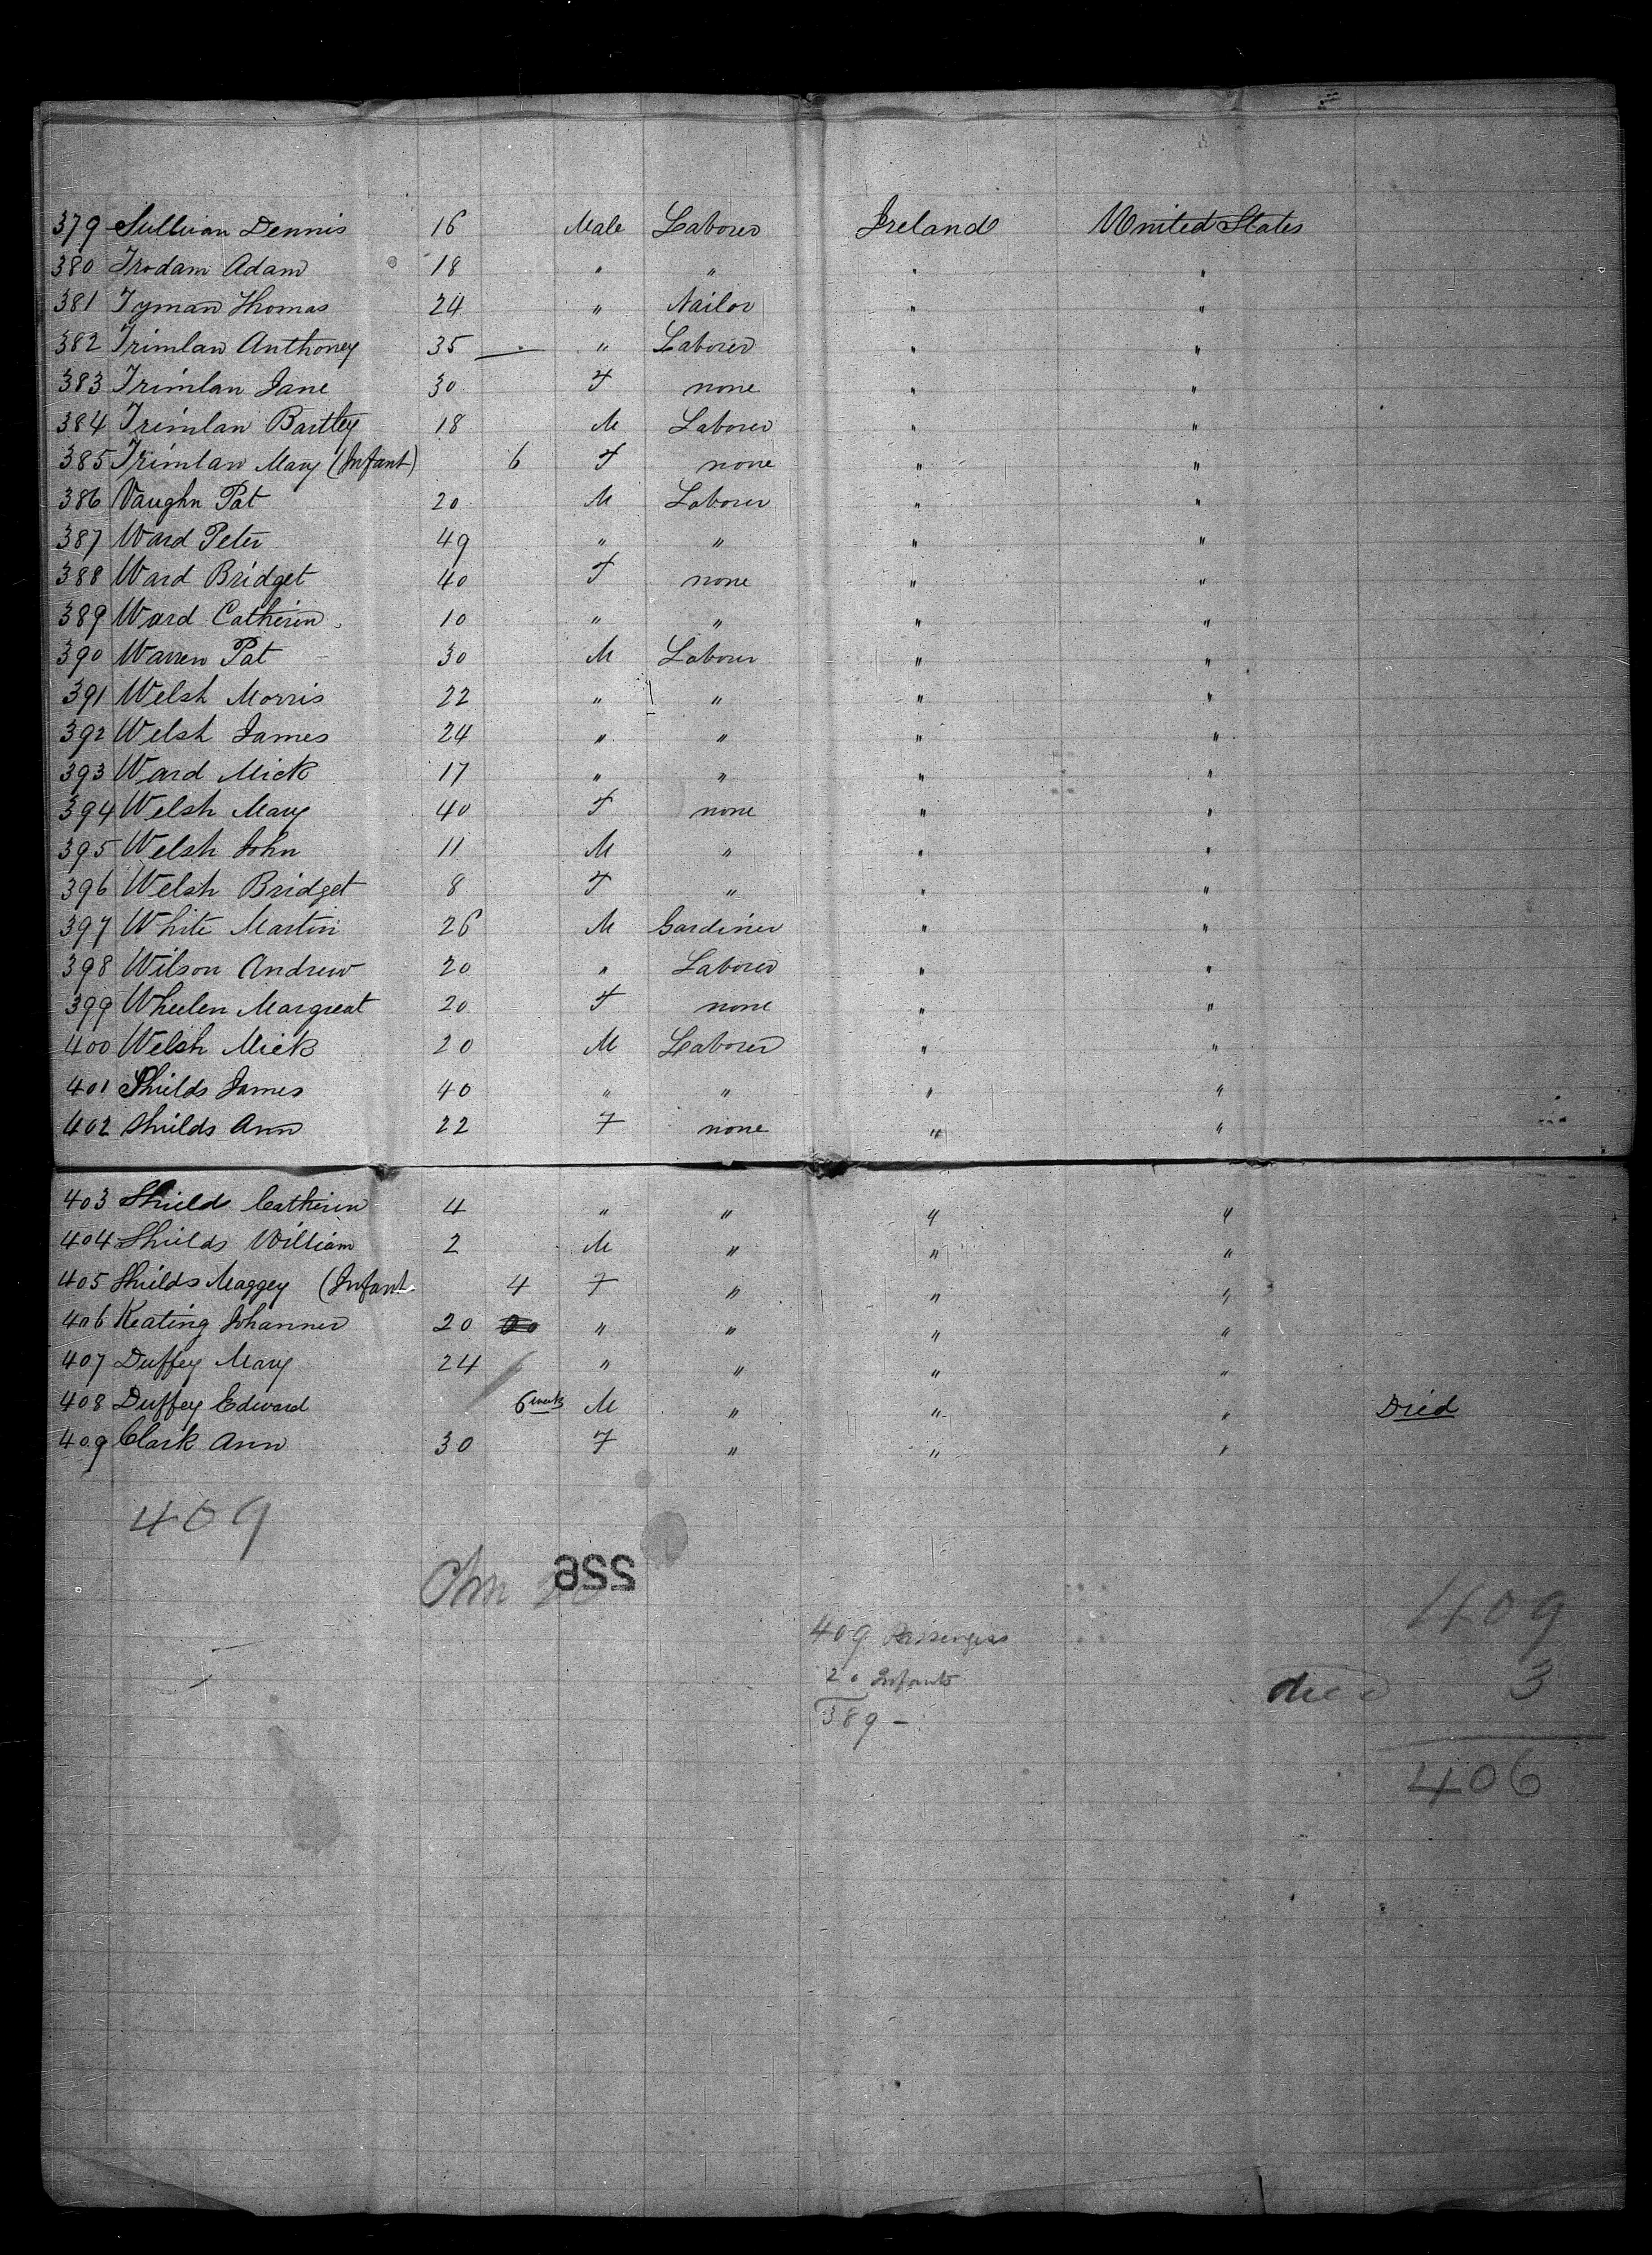 379 Sullivan Dennis 16 Male Laborer Ireland United States
380 Trodam Adam 18 " " " "
381 Tyman Thomas 24 " Nailor " "
382 Trimlan Anthoney 35 " Laborer " "
383 Trimlan Jane 30 F none " "
384 Trimlan Bartley 18 M Laborer " "
385 Trimlan Mary (Infant) 6 F none " "
386 Vaughn Pat 20 M Laborer " "
387 Ward Peter 49 " " " "
388 Ward Bridget 40 F none " "
389 Ward Catherin 10 " " " "
390 Warren Pat 30 M Laborer " "
391 Welsh Morris 22 " " " "
392 Welsh James 24 " " " "
393 Ward Mick 17 " " " "
394 Welsh Mary 40 F none " "
395 Welsh John 11 M " " "
396 Welsh Bridget 8 F " " "
397 White Martin 26 M Gardiner " "
398 Wilson Andrew 20 " Laborer " "
399 Wheelen Margreat 20 F none " "
400 Welsh Mick 20 M Laborer " "
401 Shields James 40 " " " "
402 Shields Ann 22 F none " "
403 Shield Catherin 4 " " " "
404 Shields William 2 M " " "
405 Shields Maggey (Infant 4 F " " "
406 Keating Johanner 20 20 " " " "
407 Duffey Mary 24 " " " "
408 Duffey Edward 6 weeks M " " " Died
409 Clark Ann 30 F " " "
409
556
409
409 Passengers
20 Infants
died 3
389 -
406